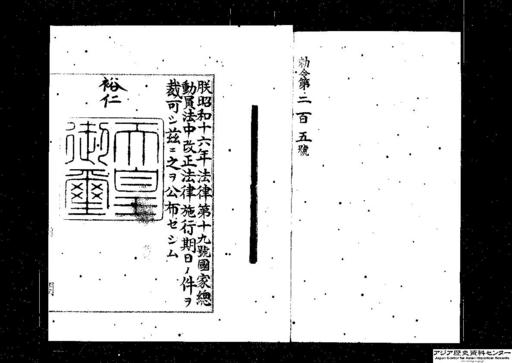 勅令第二百五號
朕昭和十六年法律第十九號國家總
動員法中改正法律施行期日ノ件ヲ
裁可シ茲ニ之ヲ公布セシム
裕仁
天皇
御璽
アジア歴史資料センター
Japan Center for Asian Historical Records